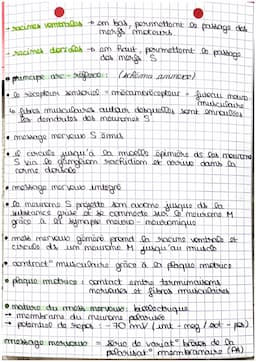 - racines ventrales → en bas, permettent le passage des messages moteurs.
- racines dorsales → en haut, permettent le passage des messages S
• principe arc-réflexe : (schéma annexe)
• le récepteur sensoriel = mécanorécepteur = fuseau neuro-musculaire
↳ fibres musculaires autour desquelles sont enroulées les dendrites des neurones S
• message nerveux S émis
• il circule jusqu'à la moelle épinière via les neurones S via le ganglion rachidien et arrive dans la corne dorsale
• message nerveux intégré
• le neurone S projette son axone jusque ds la substance grise et se connecte sur le neurone M grâce à la synapse neuro-neuronique
• mess nerveux généré prend la racine ventrale et circule ds un neurone M jusqu'au muscle
• contract° musculaire grâce à la plaque motrice
• plaque motrice : contact entre terminaisons nerveuses et fibres musculaires
• nature du mess nerveux : bioélectrique
→ membrane du neurone polarisée
→ potentiel de repos : -70 mV (int = neg / ext = pos)
message nerveux = série de variat° brèves de la polarisat° membranaire (PA)